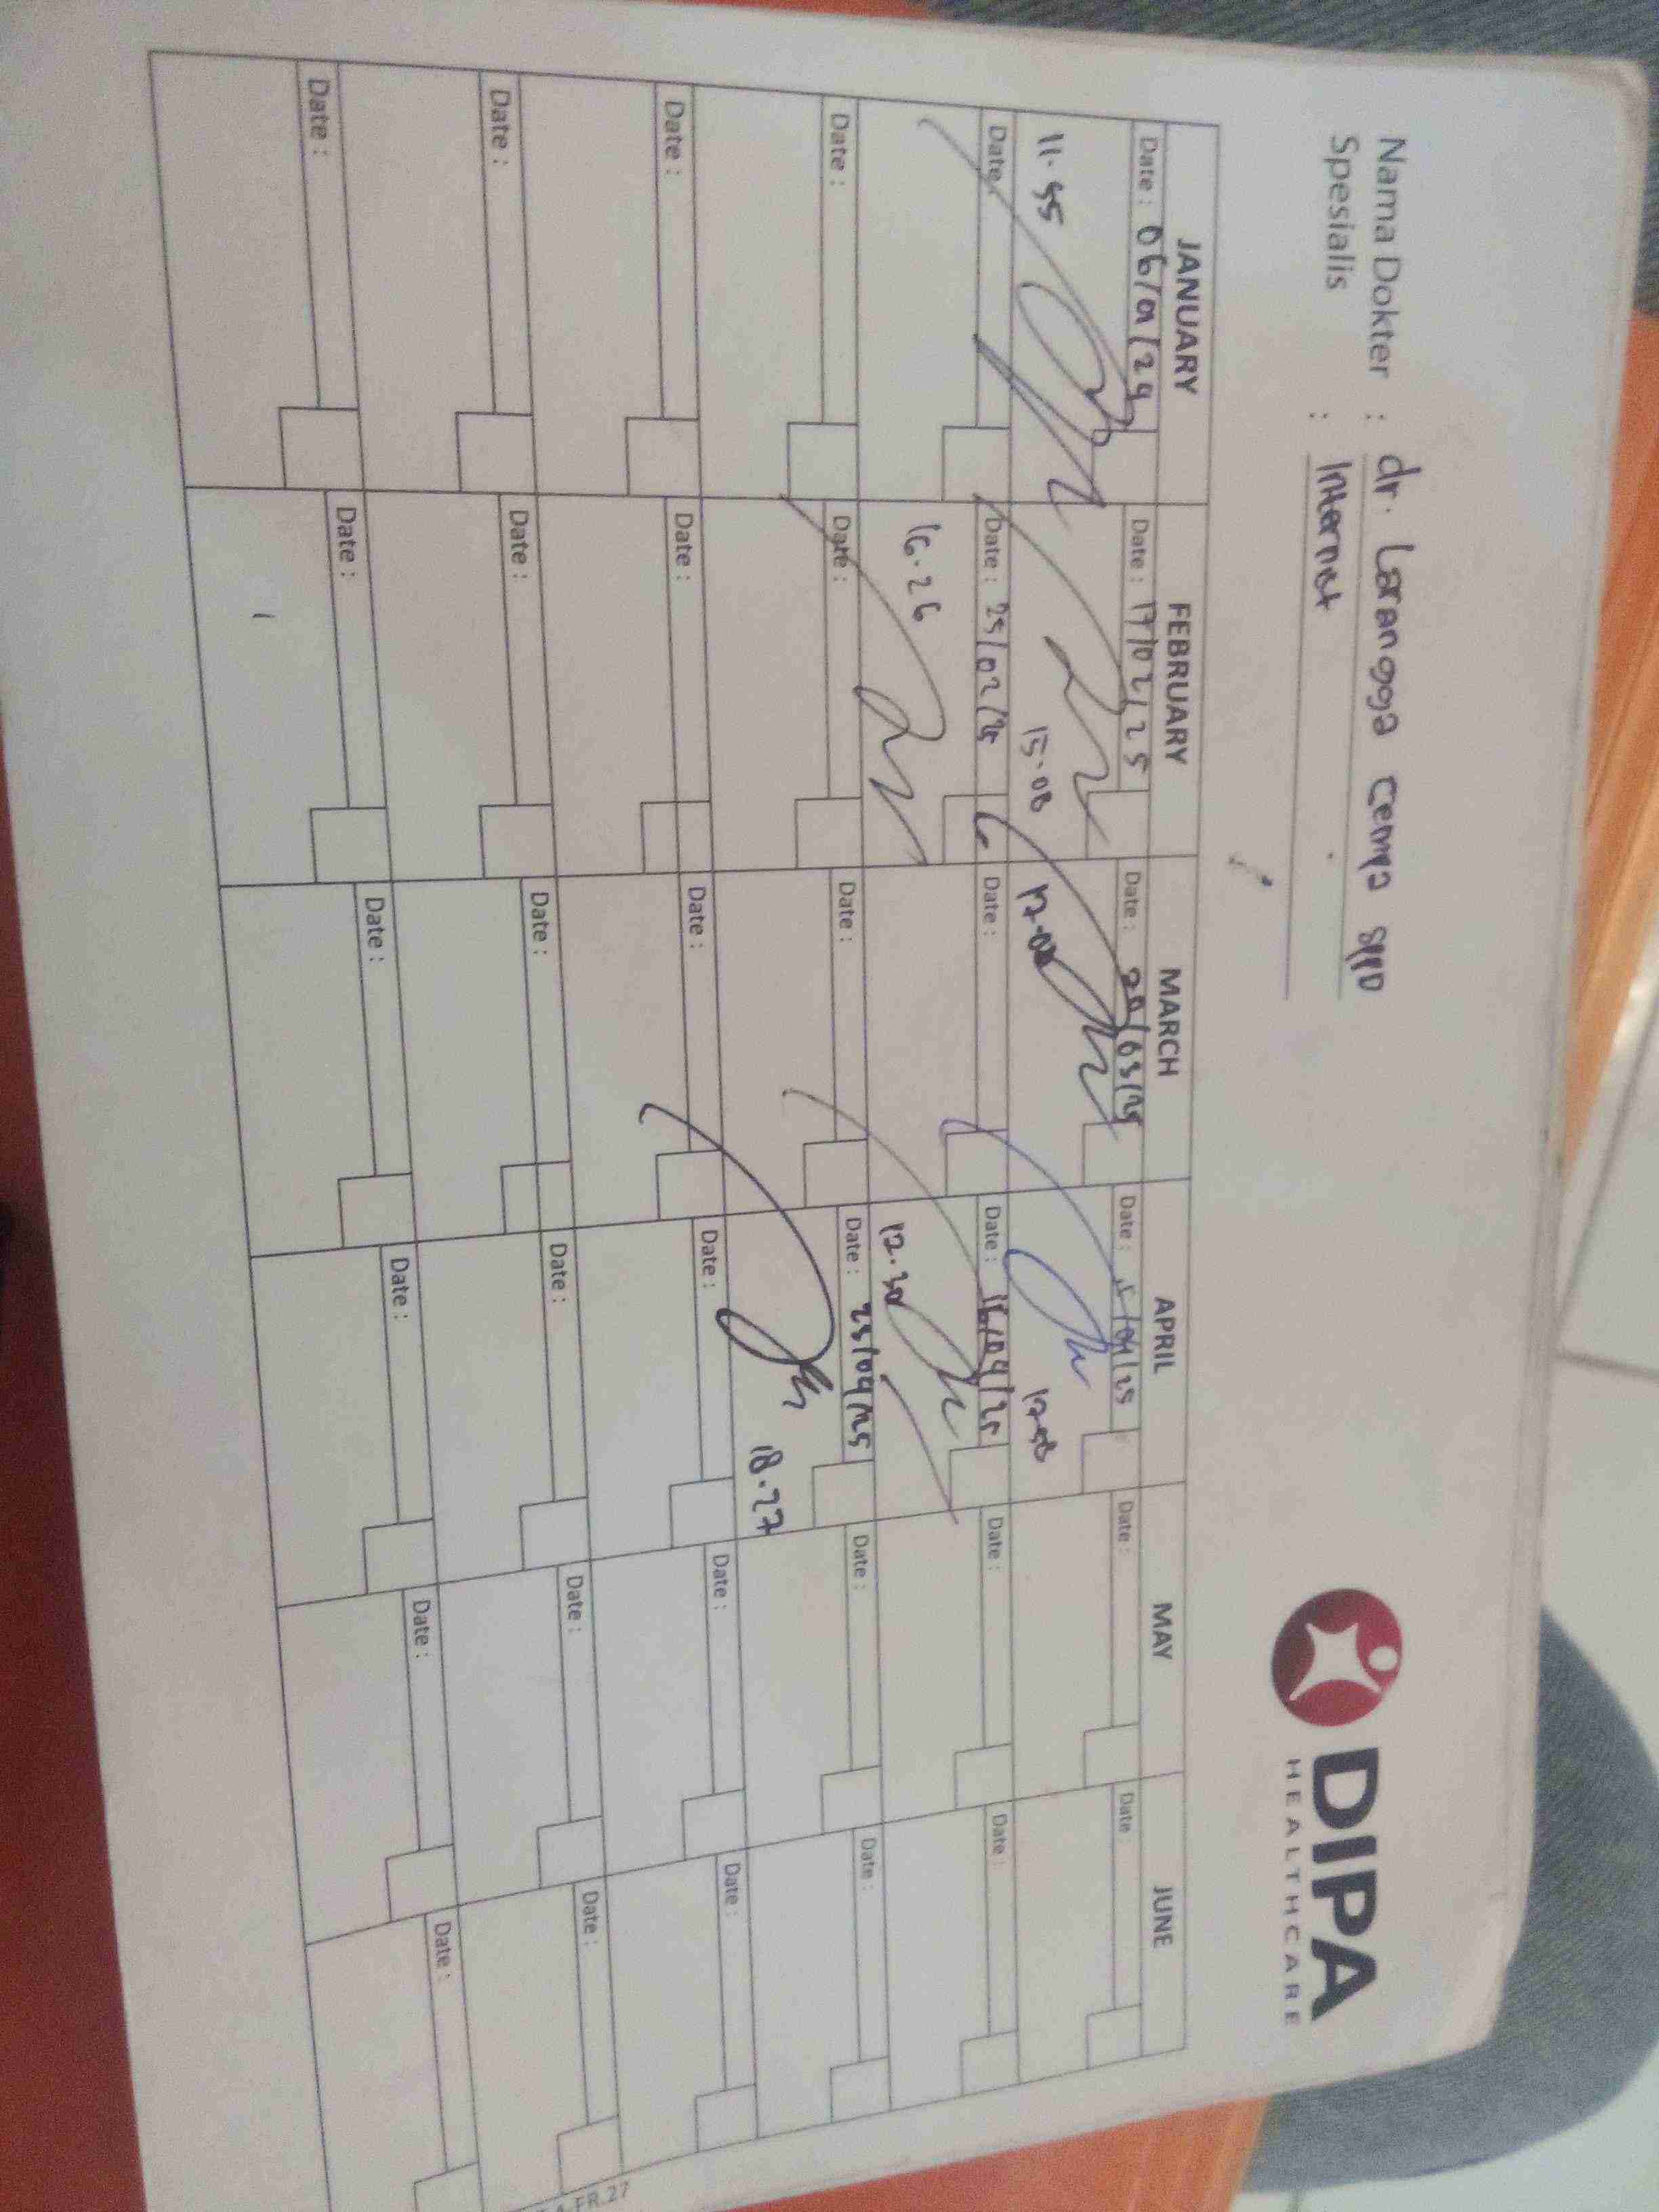 Nama Dokter : dr. Larangga cempa SppD
Spesialis : Internist
DIPA
HEALTHCARE
JANUARY FEBRUARY MARCH APRIL MAY JUNE
Date : 06/01/29 Date : 17/02/25 Date : 20/03/25 Date : /04/25 Date : Date :
11.55 15.08 17.08 17.58
Date : Date : 25/02/25 Date : Date : 16/04/25 Date : Date :
16.26 12.30
Date : Date : Date : Date : 23/04/25 Date : Date :
18.27
Date : Date : Date : Date : Date : Date :
Date : Date : Date : Date : Date : Date :
Date : Date : Date : Date : Date : Date :
FR.27